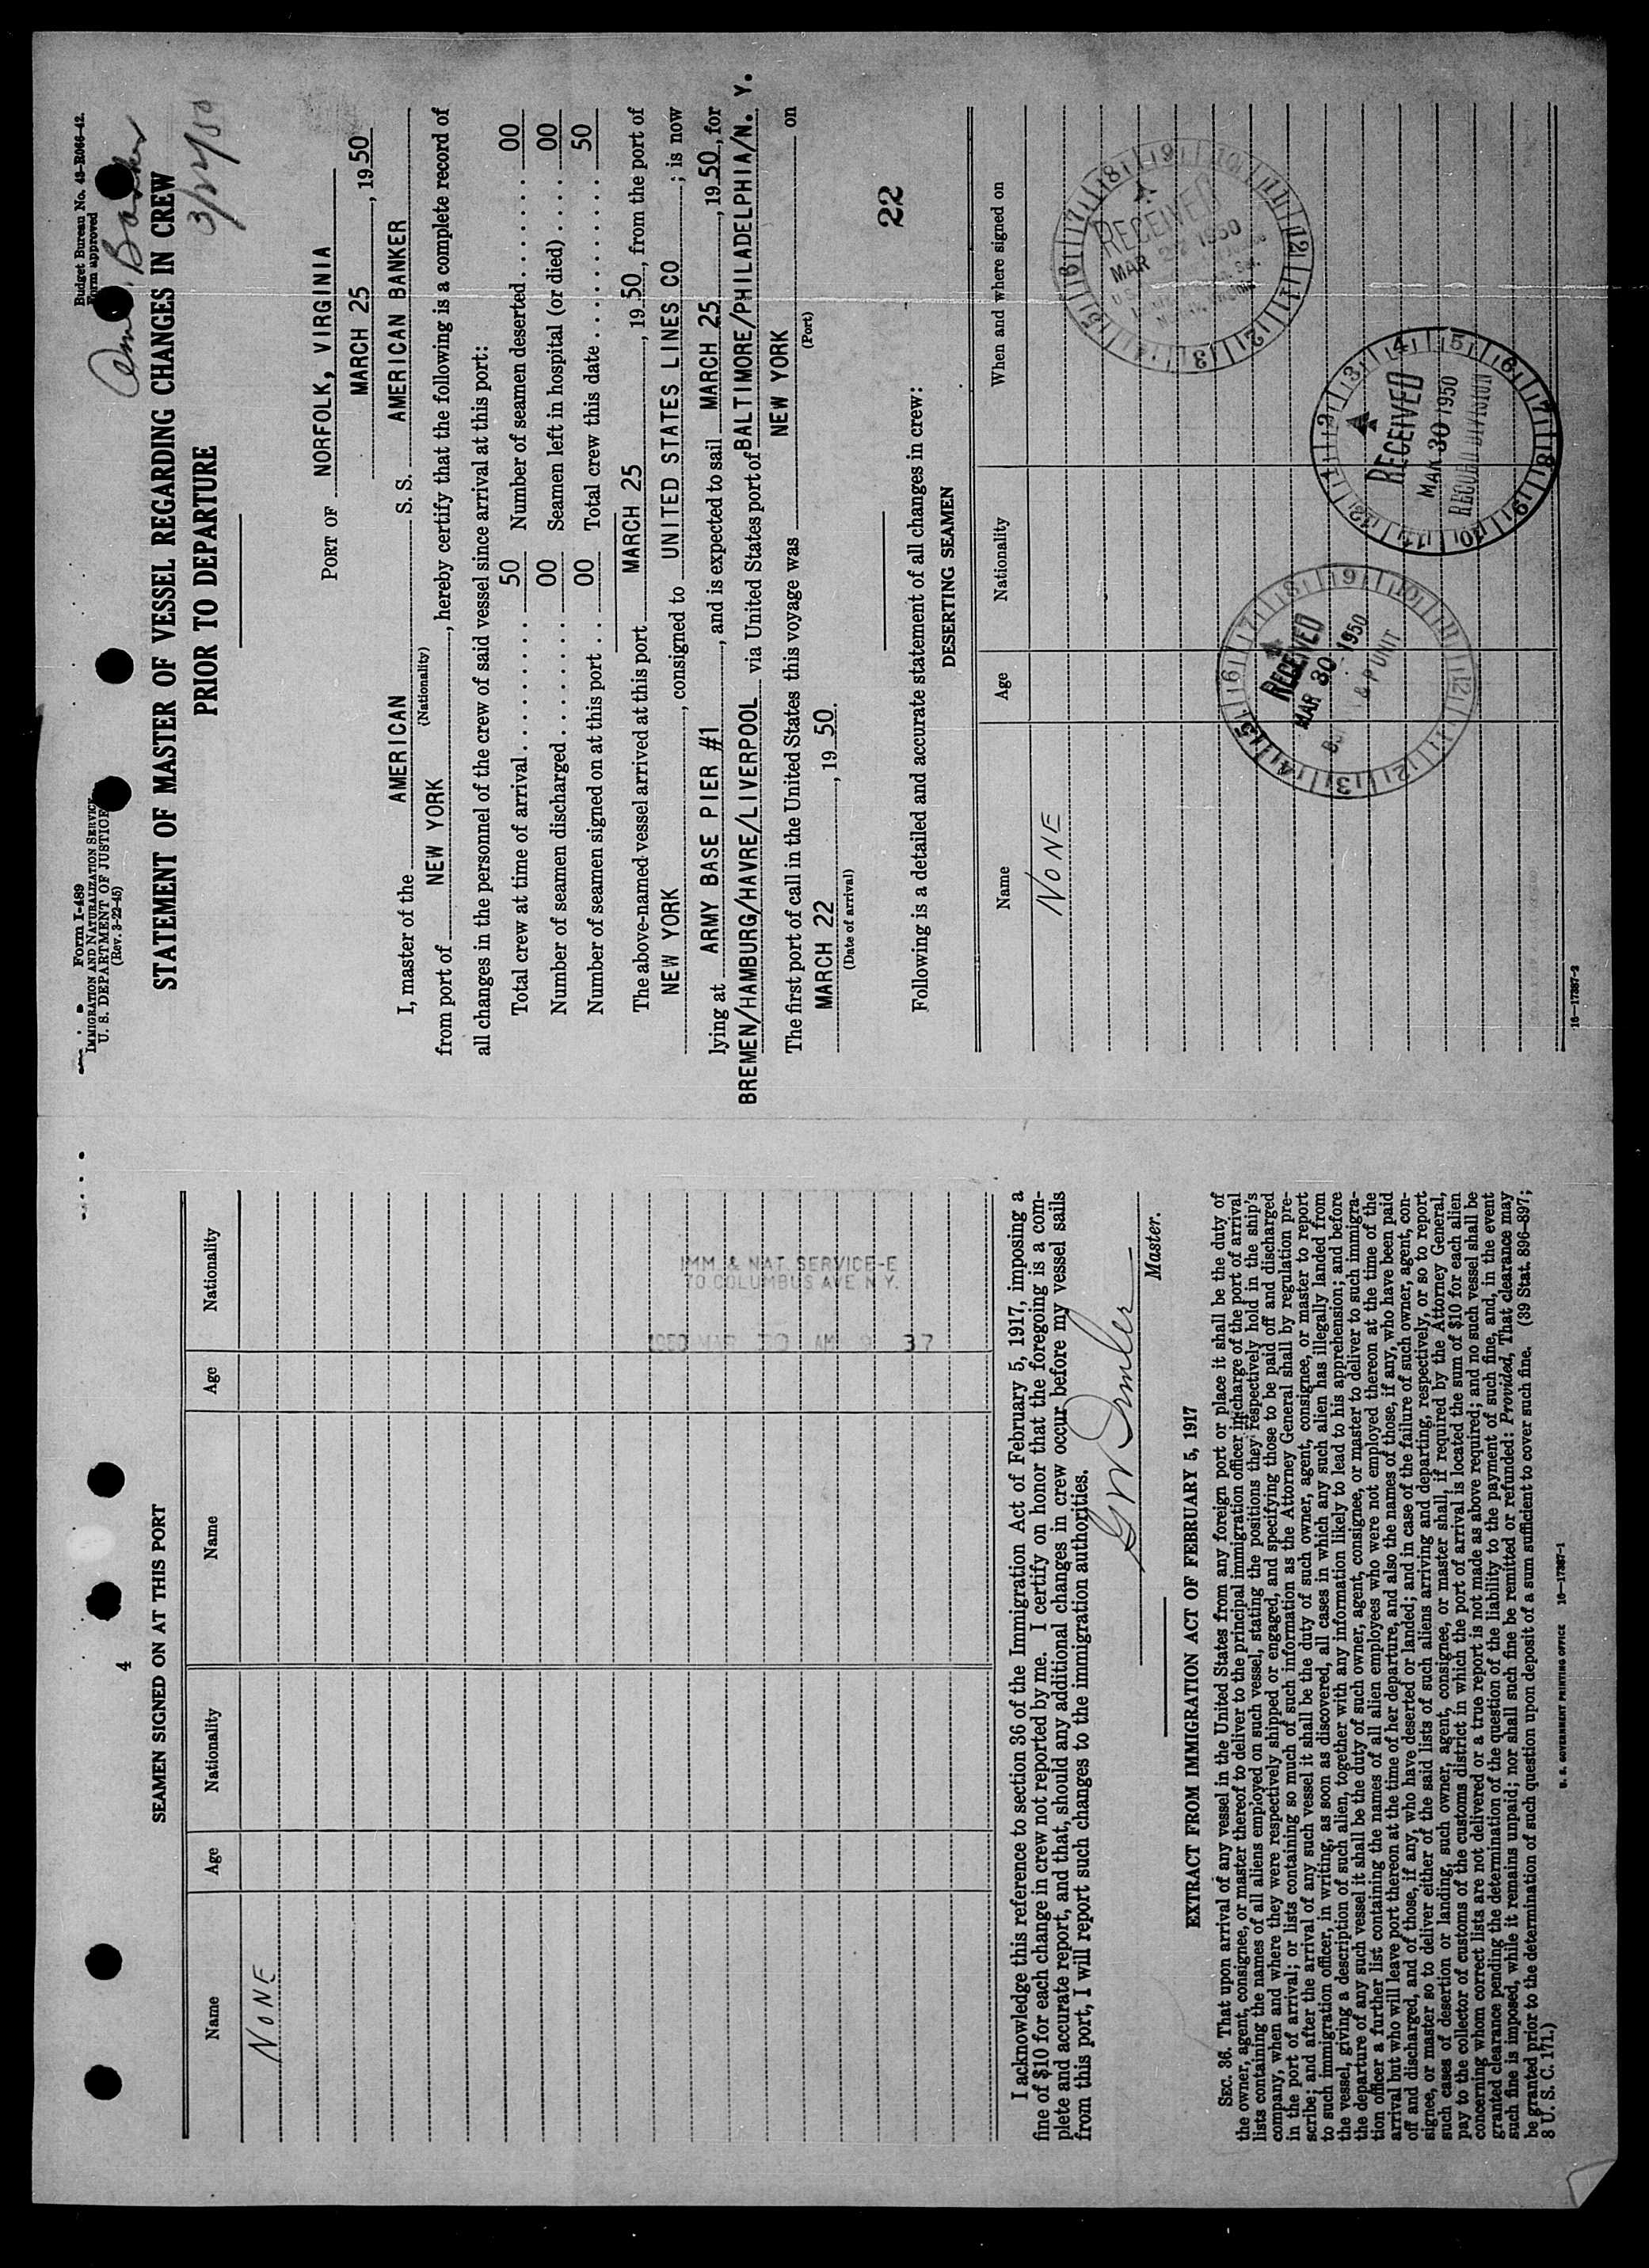 Form I-489
IMMIGRATION AND NATURALIZATION SERVICE
U. S. DEPARTMENT OF JUSTICE
(Rev. 3-22-45)
Budget Bureau No. 43-R066-42.
Form approved
3/22/50
STATEMENT OF MASTER OF VESSEL REGARDING CHANGES IN CREW
PRIOR TO DEPARTURE
PORT OF NORFOLK, VIRGINIA
MARCH 25, 19 50
I, master of the AMERICAN S. S. AMERICAN BANKER
(Nationality)
from port of NEW YORK, hereby certify that the following is a complete record of
all changes in the personnel of the crew of said vessel since arrival at this port:
Total crew at time of arrival 50 Number of seamen deserted 00
Number of seamen discharged 00 Seamen left in hospital (or died) 00
Number of seamen signed on at this port 00 Total crew this date 50
The above-named vessel arrived at this port MARCH 25, 19 50, from the port of
NEW YORK, consigned to UNITED STATES LINES CO; is now
lying at ARMY BASE PIER #1, and is expected to sail MARCH 25, 19 50, for
BREMEN/HAMBURG/HAVRE/LIVERPOOL via United States port of BALTIMORE/PHILADELPHIA/N. Y.
The first port of call in the United States this voyage was NEW YORK on
(Port)
MARCH 22, 19 50.
(Date of arrival)
22
Following is a detailed and accurate statement of all changes in crew:
DESERTING SEAMEN
Name Age Nationality When and where signed on
NONE
RECEIVED
MAR 27 1950
RECEIVED
MAR 30 1950
RECORD DIVISION
RECEIVED
MAR 30 1950
& P UNIT
16—17387-2
4
SEAMEN SIGNED ON AT THIS PORT
Name Age Nationality Name Age Nationality
NONE
IMM. & NAT. SERVICE-E
70 COLUMBUS AVE N.Y.
1950 MAR 30 AM 9 37
I acknowledge this reference to section 36 of the Immigration Act of February 5, 1917, imposing a
fine of $10 for each change in crew not reported by me. I certify on honor that the foregoing is a com-
plete and accurate report, and that, should any additional changes in crew occur before my vessel sails
from this port, I will report such changes to the immigration authorities.
Master.
EXTRACT FROM IMMIGRATION ACT OF FEBRUARY 5, 1917
SEC. 36. That upon arrival of any vessel in the United States from any foreign port or place it shall be the duty of
the owner, agent, consignee, or master thereof to deliver to the principal immigration officer in charge of the port of arrival
lists containing the names of all aliens employed on such vessel, stating the positions they respectively hold in the ship's
company, when and where they were respectively shipped or engaged, and specifying those to be paid off and discharged
in the port of arrival; or lists containing so much of such information as the Attorney General shall by regulation pre-
scribe; and after the arrival of any such vessel it shall be the duty of such owner, agent, consignee, or master to report
to such immigration officer, in writing, as soon as discovered, all cases in which any such alien has illegally landed from
the vessel, giving a description of such alien, together with any information likely to lead to his apprehension; and before
the departure of any such vessel it shall be the duty of such owner, agent, consignee, or master to deliver to such immigra-
tion officer a further list containing the names of all alien employees who were not employed thereon at the time of the
arrival but who will leave port thereon at the time of her departure, and also the names of those, if any, who have been paid
off and discharged, and of those, if any, who have deserted or landed; and in case of the failure of such owner, agent, con-
signee, or master so to deliver either of the said lists of such aliens arriving and departing, respectively, or so to report
such cases of desertion or landing, such owner, agent, consignee, or master shall, if required by the Attorney General,
pay to the collector of customs of the customs district in which the port of arrival is located the sum of $10 for each alien
concerning whom correct lists are not delivered or a true report is not made as above required; and no such vessel shall be
granted clearance pending the determination of the question of the liability to the payment of such fine, and, in the event
such fine is imposed, while it remains unpaid; nor shall such fine be remitted or refunded: Provided, That clearance may
be granted prior to the determination of such question upon deposit of a sum sufficient to cover such fine. (39 Stat. 896-897;
8 U. S. C. 171.)
U. S. GOVERNMENT PRINTING OFFICE 16—17387-1